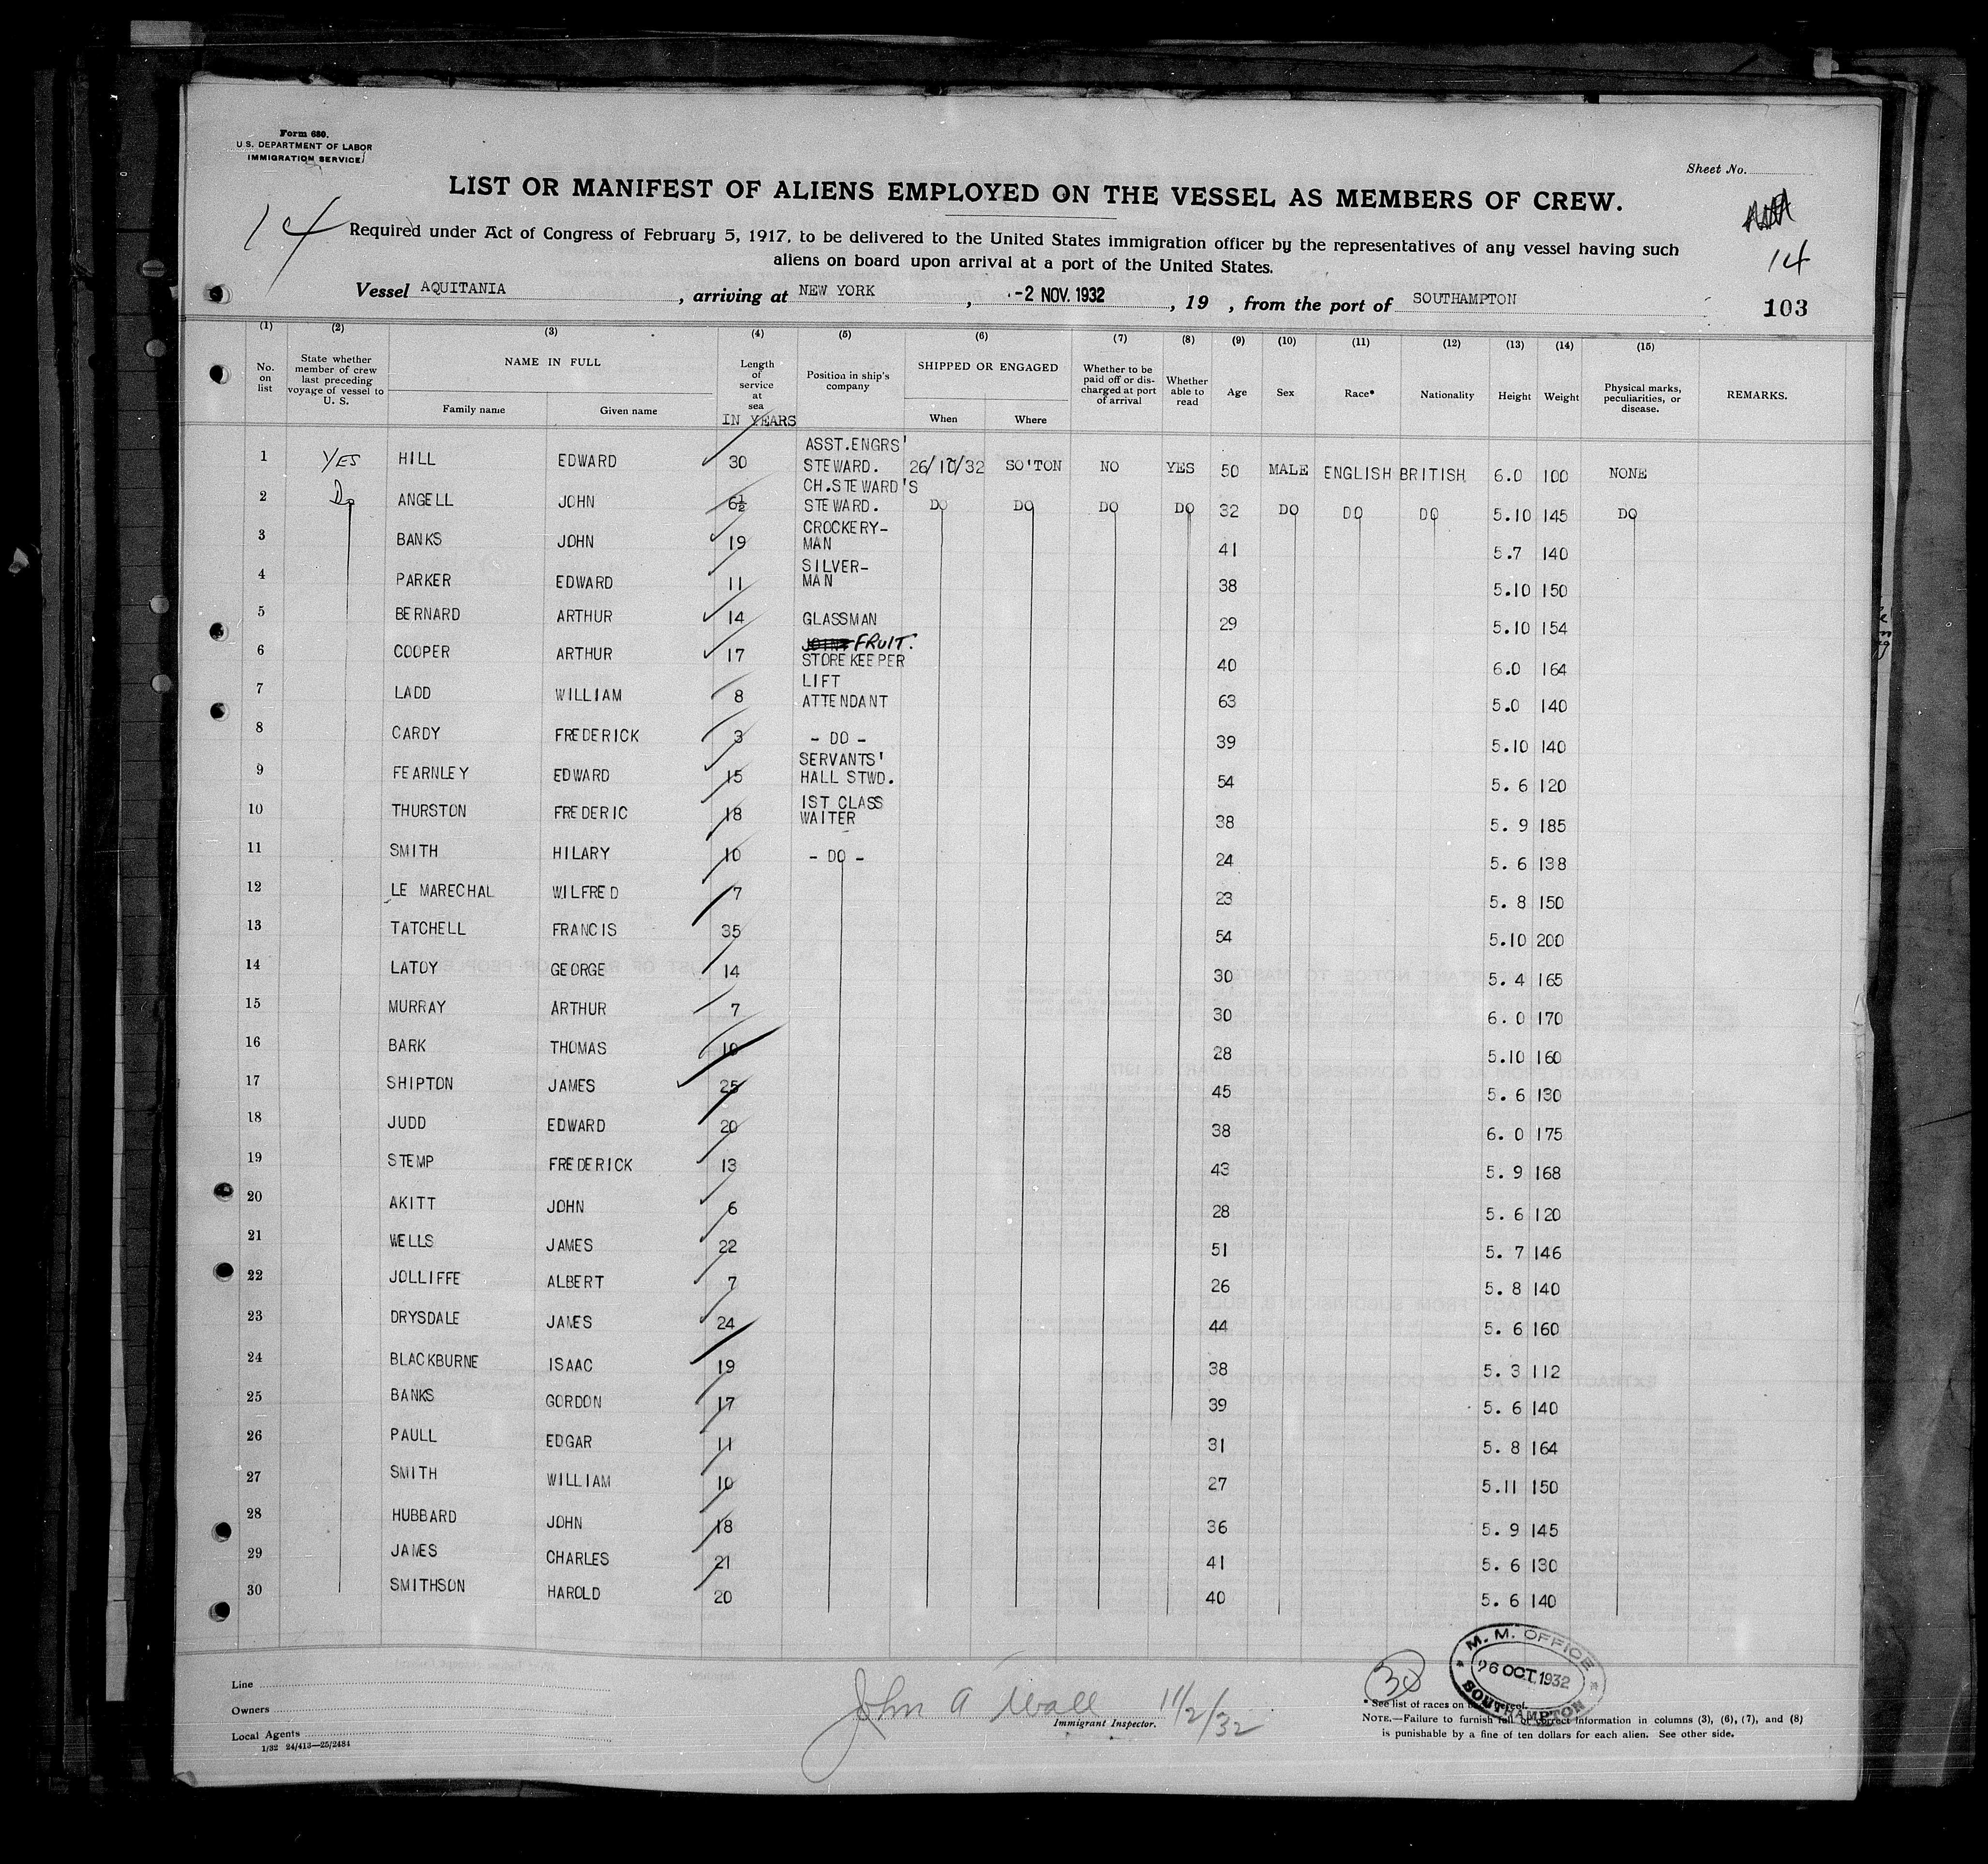 Form 680.
U.S. DEPARTMENT OF LABOR
IMMIGRATION SERVICE
Sheet No.
LIST OR MANIFEST OF ALIENS EMPLOYED ON THE VESSEL AS MEMBERS OF CREW.
14
Required under Act of Congress of February 5, 1917, to be delivered to the United States immigration officer by the representatives of any vessel having such
aliens on board upon arrival at a port of the United States.
14
Vessel AQUITANIA, arriving at NEW YORK, -2 NOV. 1932, 19 , from the port of SOUTHAMPTON
103
(1) (2) (3) (4) (5) (6) (7) (8) (9) (10) (11) (12) (13) (14) (15)
No. on list State whether member of crew last preceding voyage of vessel to U. S. NAME IN FULL Family name Given name Length of service at sea IN YEARS Position in ship's company SHIPPED OR ENGAGED When Where Whether to be paid off or discharged at port of arrival Whether able to read Age Sex Race* Nationality Height Weight Physical marks, peculiarities, or disease. REMARKS.
1 YES HILL EDWARD 30 ASST.ENGRS' STEWARD. 26/10/32 SO'TON NO YES 50 MALE ENGLISH BRITISH 6.0 100 NONE
2 Do ANGELL JOHN 6½ CH.STEWARD'S STEWARD. DO DO DO DO 32 DO DO DO 5.10 145 DO
3 BANKS JOHN 19 CROCKERY-MAN 41 5.7 140
4 PARKER EDWARD 11 SILVER-MAN 38 5.10 150
5 BERNARD ARTHUR 14 GLASSMAN 29 5.10 154
6 COOPER ARTHUR 17 FRUIT. STOREKEEPER 40 6.0 164
7 LADD WILLIAM 8 LIFT ATTENDANT 63 5.0 140
8 CARDY FREDERICK 3 - DO - 39 5.10 140
9 FEARNLEY EDWARD 15 SERVANTS' HALL STWD. 54 5. 6 120
10 THURSTON FREDERIC 18 1ST CLASS WAITER 38 5. 9 185
11 SMITH HILARY 10 - DO - 24 5. 6 138
12 LE MARECHAL WILFRED 7 23 5. 8 150
13 TATCHELL FRANCIS 35 54 5.10 200
14 LATOY GEORGE 14 30 5. 4 165
15 MURRAY ARTHUR 7 30 6. 0 170
16 BARK THOMAS 10 28 5.10 160
17 SHIPTON JAMES 25 45 5. 6 130
18 JUDD EDWARD 20 38 6. 0 175
19 STEMP FREDERICK 13 43 5. 9 168
20 AKITT JOHN 6 28 5. 6 120
21 WELLS JAMES 22 51 5. 7 146
22 JOLLIFFE ALBERT 7 26 5. 8 140
23 DRYSDALE JAMES 24 44 5. 6 160
24 BLACKBURNE ISAAC 19 38 5. 3 112
25 BANKS GORDON 17 39 5. 6 140
26 PAULL EDGAR 11 31 5. 8 164
27 SMITH WILLIAM 10 27 5.11 150
28 HUBBARD JOHN 18 36 5. 9 145
29 JAMES CHARLES 21 41 5. 6 130
30 SMITHSON HAROLD 20 40 5. 6 140
Line
Owners
Local Agents
1/32 24/413—25/2484
John A Wall 11/2/32
Immigrant Inspector.
30
M. M. OFFICE
26 OCT. 1932
SOUTHAMPTON
* See list of races on back hereof.
NOTE.—Failure to furnish full or correct information in columns (3), (6), (7), and (8)
is punishable by a fine of ten dollars for each alien. See other side.